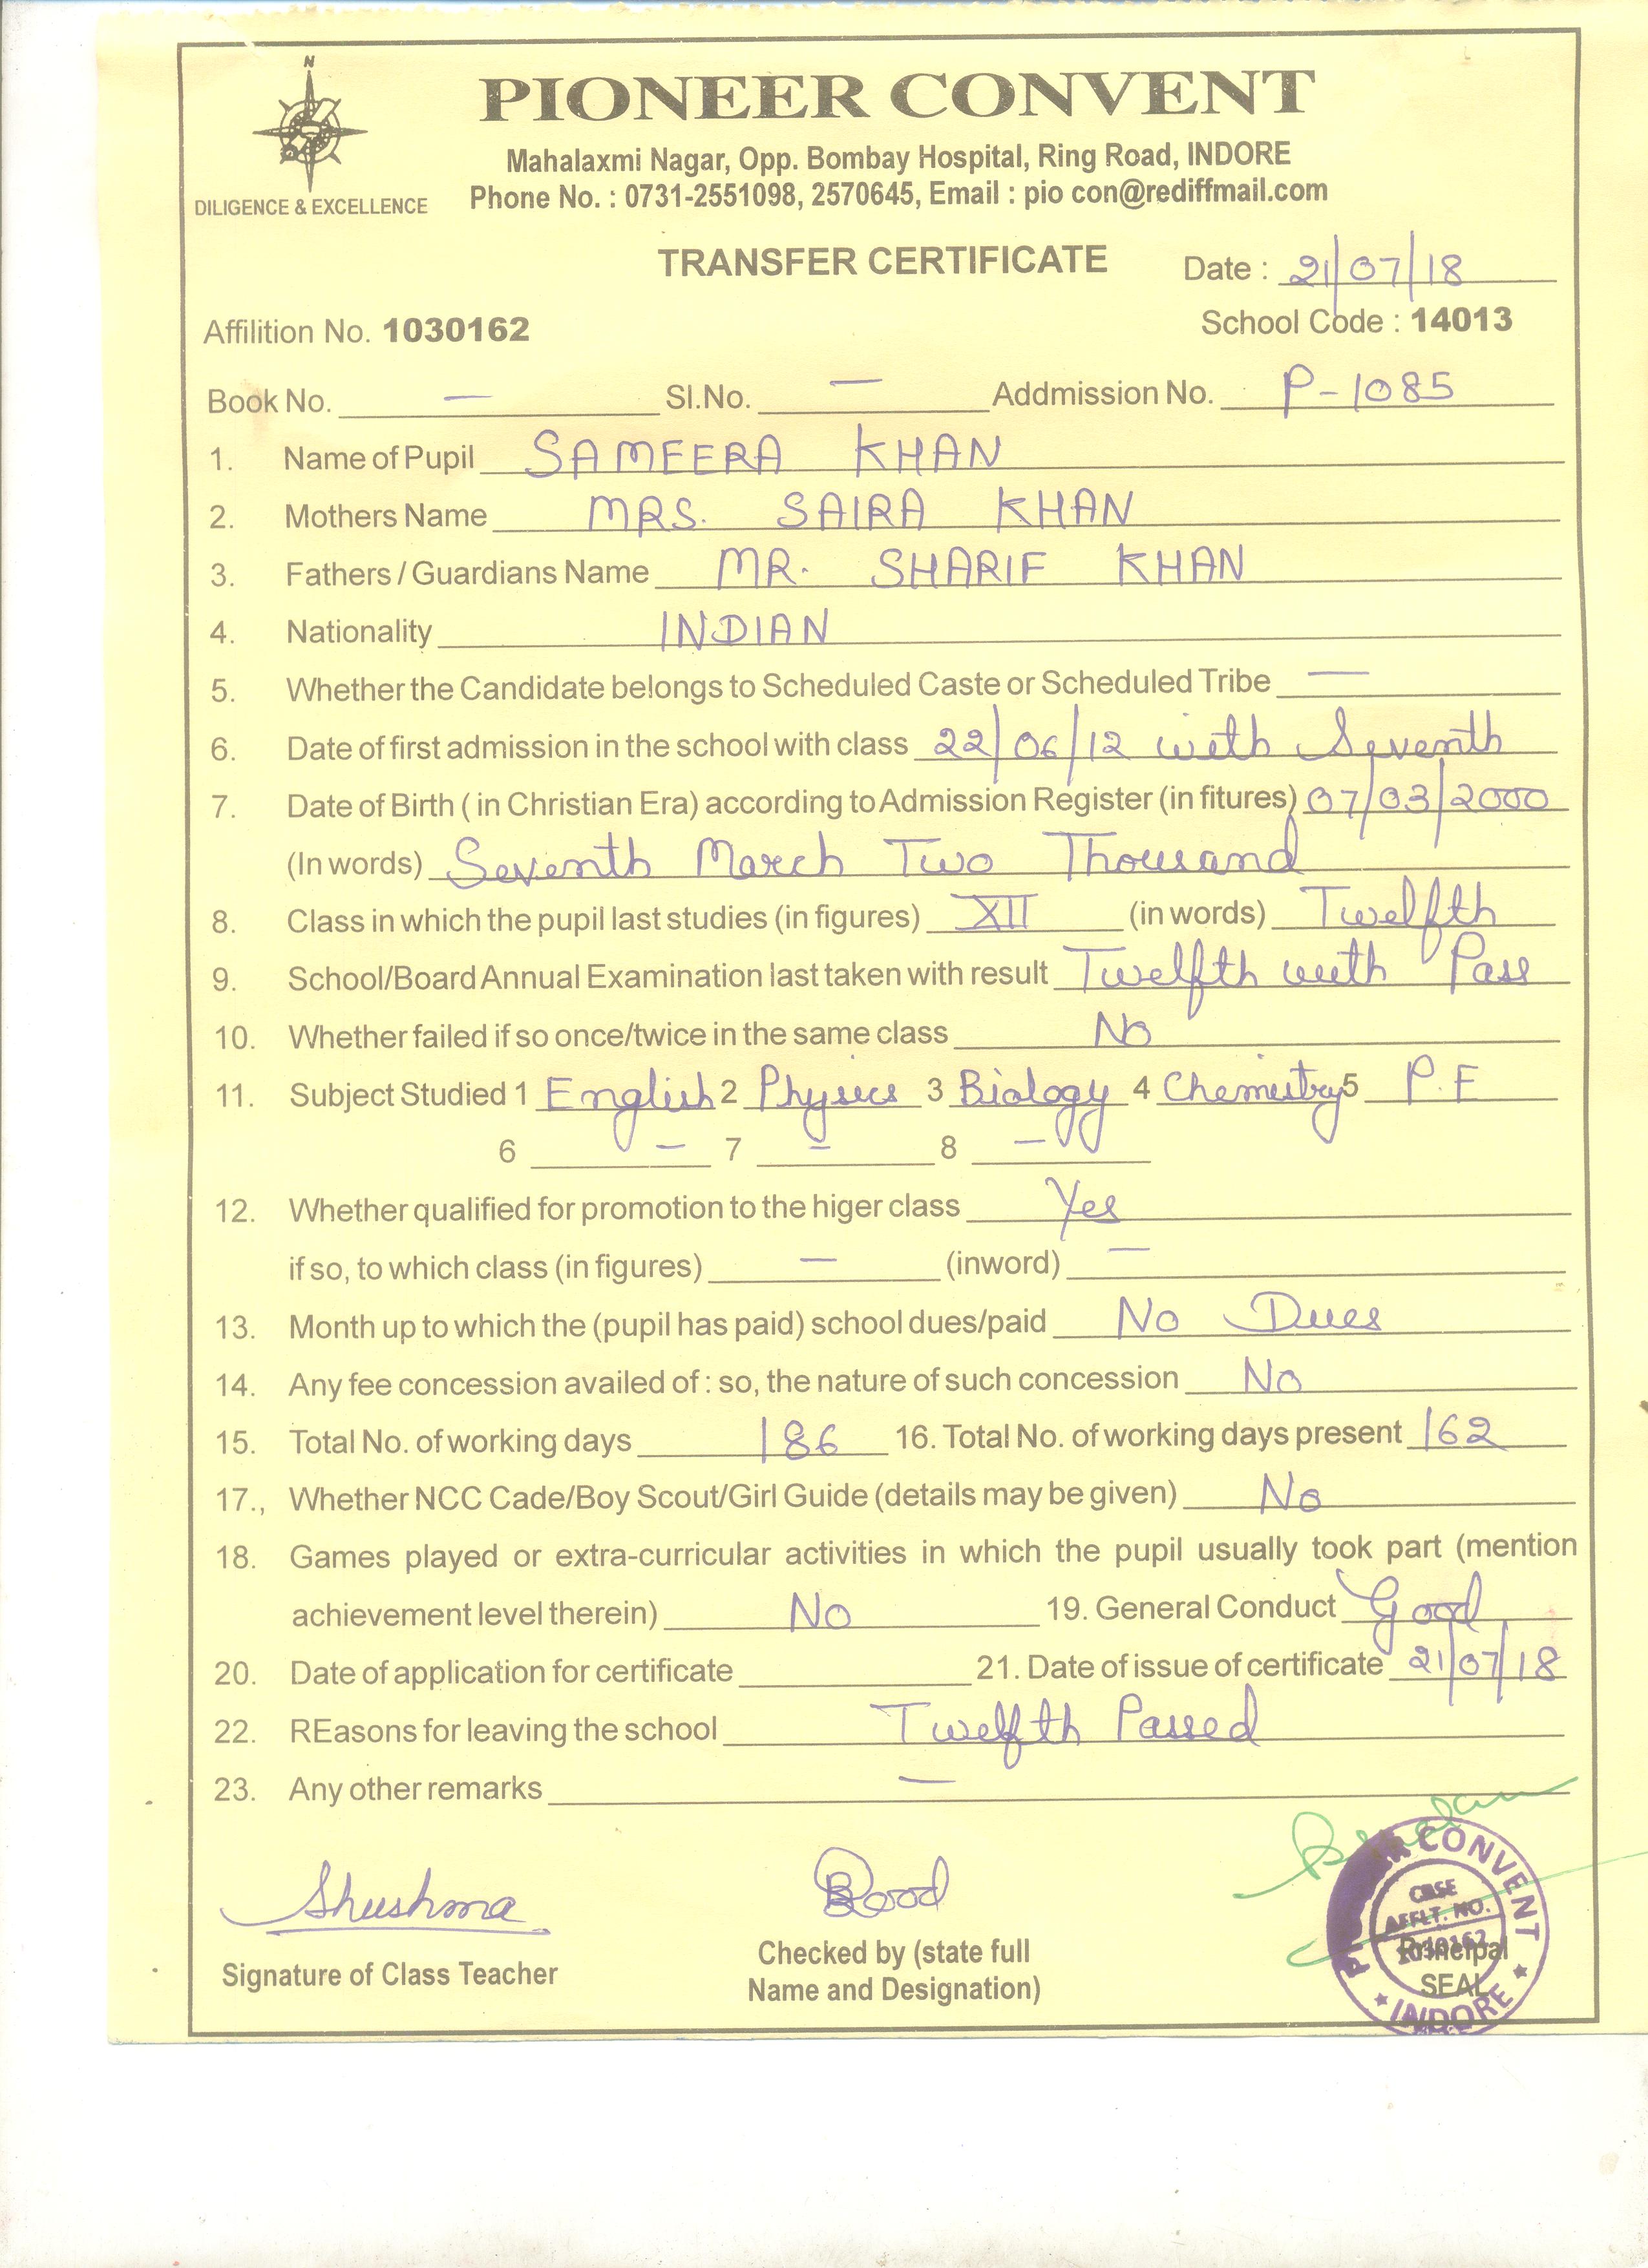 N
PIONEER CONVENT
Mahalaxmi Nagar, Opp. Bombay Hospital, Ring Road, INDORE
DILIGENCE & EXCELLENCE Phone No. : 0731-2551098, 2570645, Email : pio con@rediffmail.com
TRANSFER CERTIFICATE Date : 21/07/18
Affilition No. 1030162 School Code : 14013
Book No. — Sl.No. — Addmission No. P-1085
1. Name of Pupil SAMEERA KHAN
2. Mothers Name MRS. SAIRA KHAN
3. Fathers / Guardians Name MR. SHARIF KHAN
4. Nationality INDIAN
5. Whether the Candidate belongs to Scheduled Caste or Scheduled Tribe —
6. Date of first admission in the school with class 22/06/12 with Seventh
7. Date of Birth ( in Christian Era) according to Admission Register (in fitures) 07/03/2000
(In words) Seventh March Two Thousand
8. Class in which the pupil last studies (in figures) XII (in words) Twelfth
9. School/Board Annual Examination last taken with result Twelfth with Pass
10. Whether failed if so once/twice in the same class No
11. Subject Studied 1 English 2 Physics 3 Biology 4 Chemistry 5 P.E
6 — 7 — 8 —
12. Whether qualified for promotion to the higer class Yes
if so, to which class (in figures) — (inword) —
13. Month up to which the (pupil has paid) school dues/paid No Dues
14. Any fee concession availed of : so, the nature of such concession No
15. Total No. of working days 186 16. Total No. of working days present 162
17., Whether NCC Cade/Boy Scout/Girl Guide (details may be given) No
18. Games played or extra-curricular activities in which the pupil usually took part (mention
achievement level therein) No 19. General Conduct Good
20. Date of application for certificate 21. Date of issue of certificate 21/07/18
22. REasons for leaving the school Twelfth Passed
23. Any other remarks —
Shushma
Signature of Class Teacher
Checked by (state full
Name and Designation)
CONVENT
CBSE
AFFLT. NO.
1030162
Principal
SEAL
★ INDORE ★